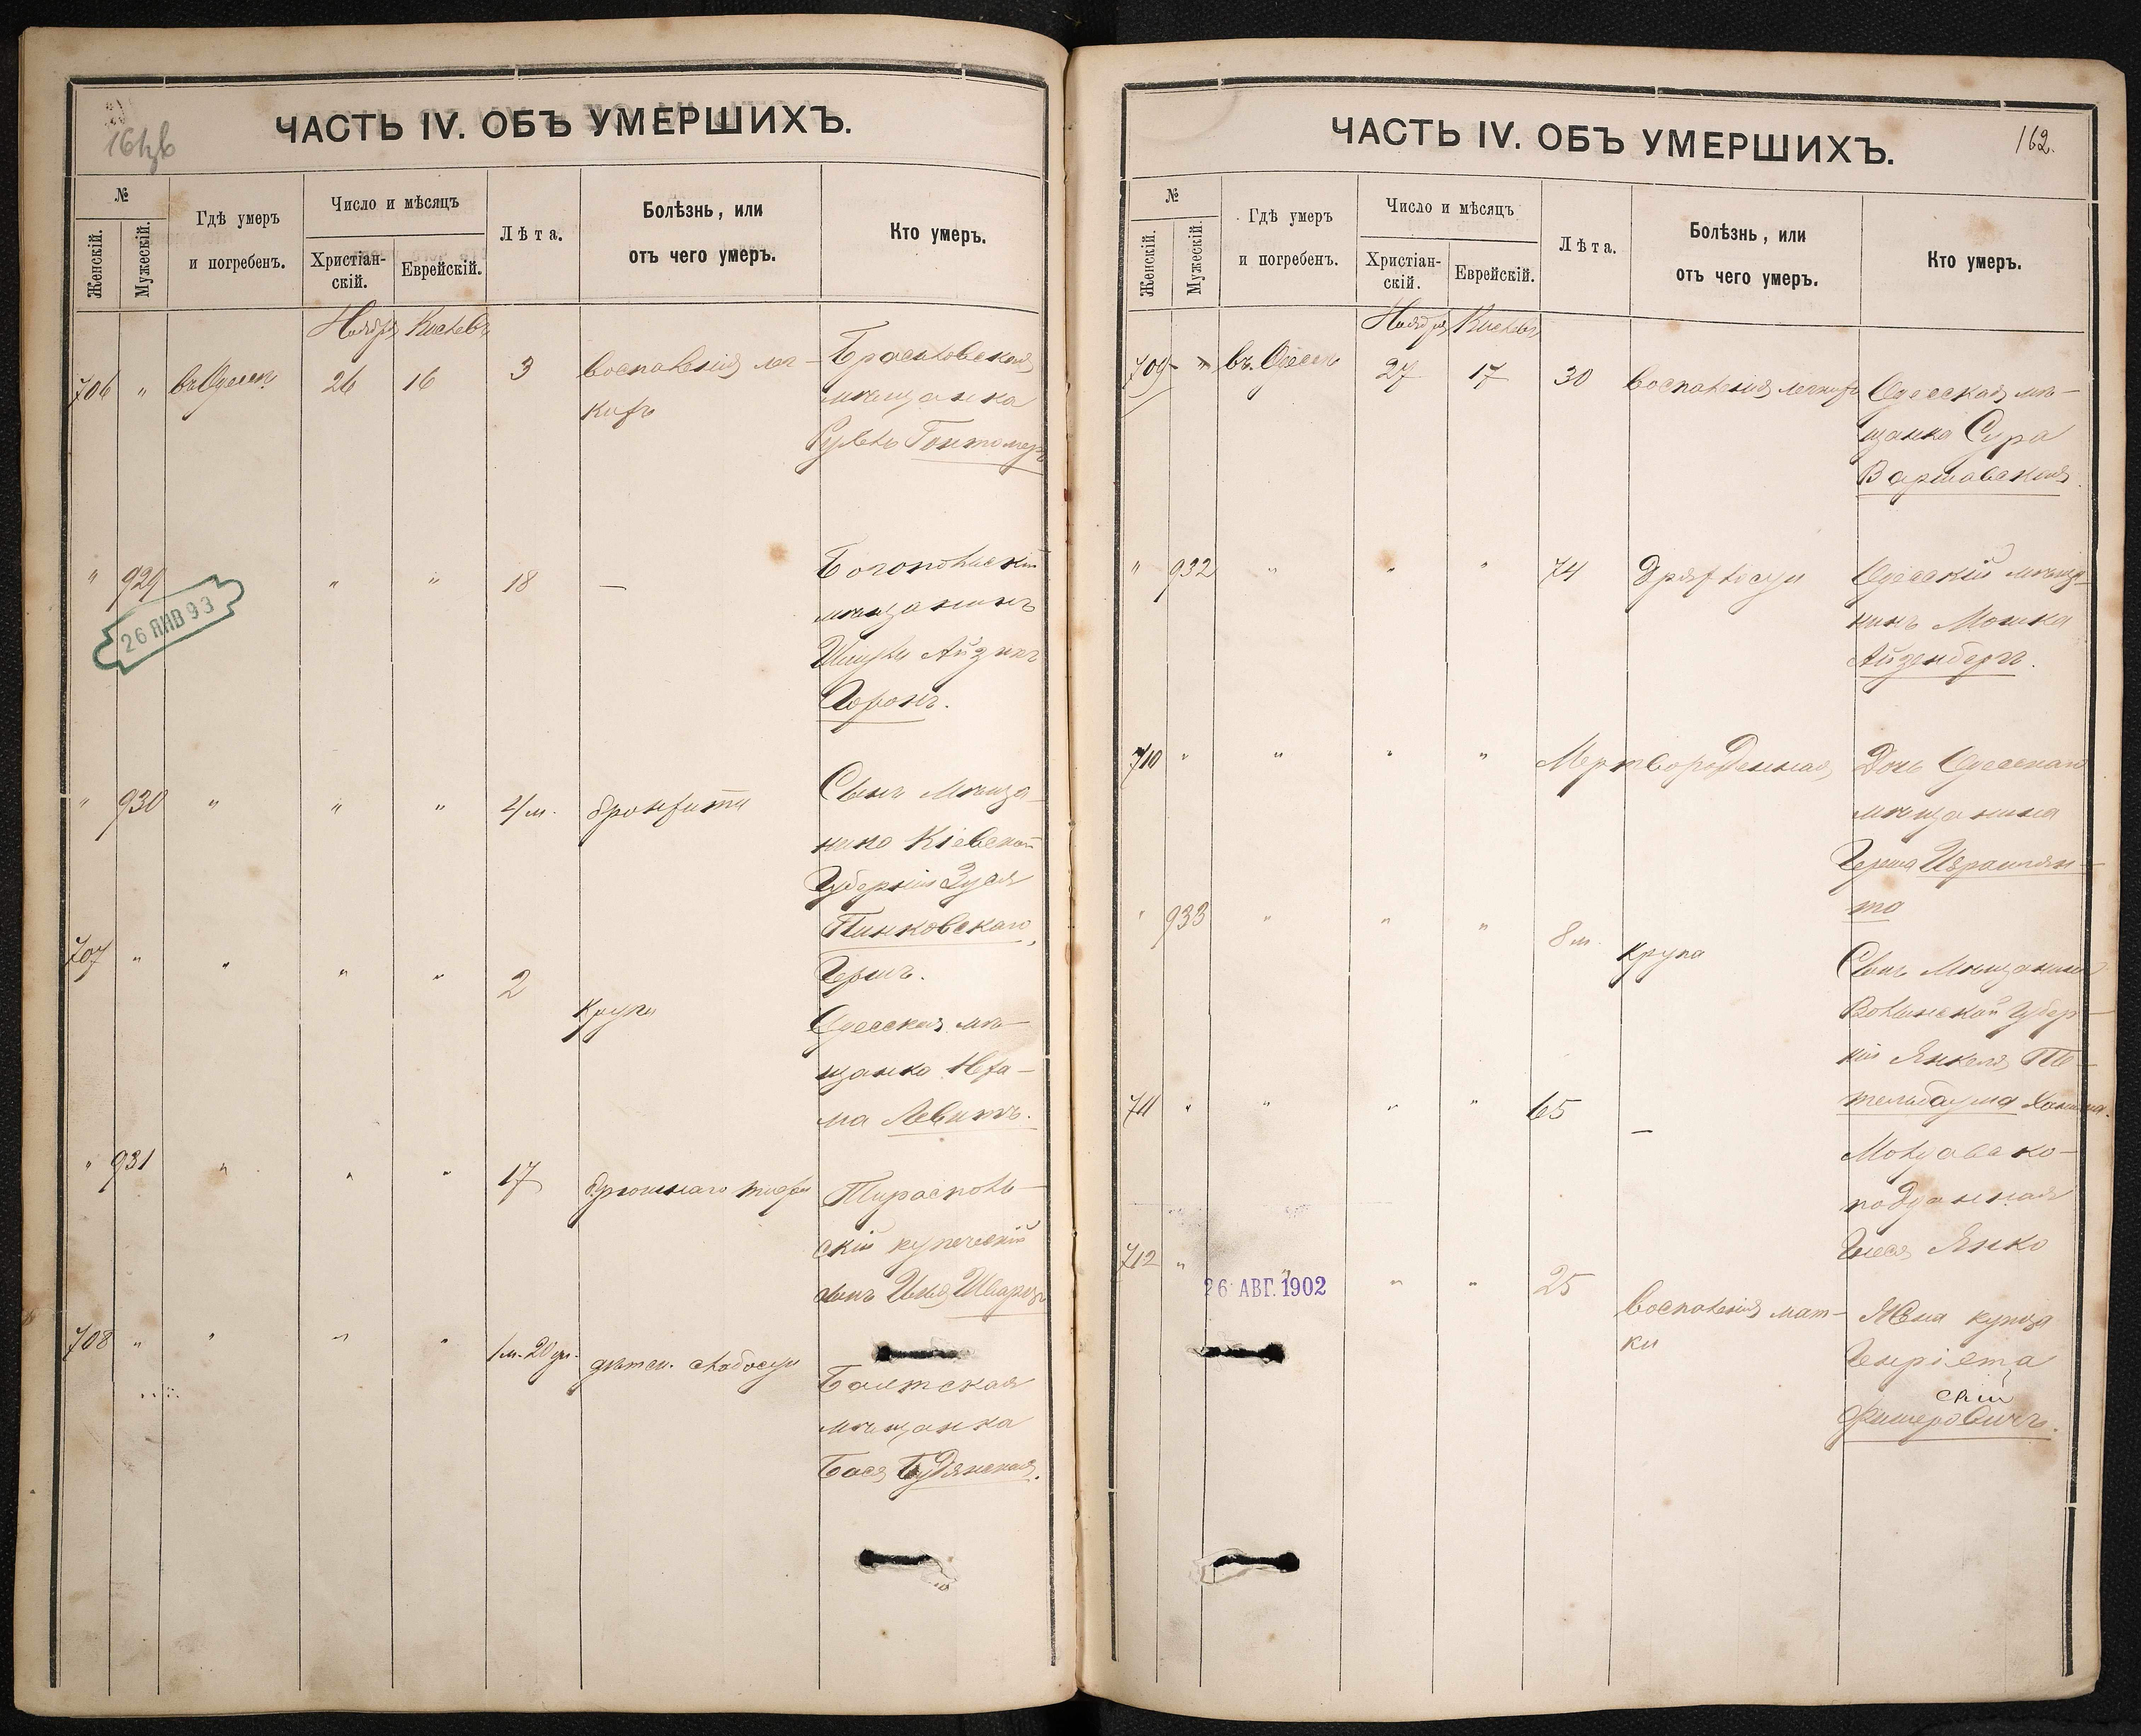 ЧАСТЬ IV. ОБЪ УМЕРШИХЪ.
№
Женскій.
Мужескій.
Гдѣ умеръ
и погребенъ.
Число и мѣсяцъ
Христіан-
скій.
Еврейскій.
Лѣта.
Болѣзнь, или
отъ чего умеръ.
Кто умеръ.
Ноября Кислевъ
706 " въ Одессѣ 26 16 3 воспаленія лег-
кихъ
Брацлавская
мѣщанка
" 929 " " 18 —
Богопольскій
мѣщанинъ
Айзикъ
26 ЯНВ 93
" 930 " " " 4 м. бронхита
Сынъ мѣща-
нина Кіевской
Губерніи Зуся
Пинковскаго,
Гершъ.
707 " " " " 2 Крупа
Одесская мѣ-
щанка Неха-
ма Левитъ.
" 931 " " " 17 брюшнаго тифа
Тирасполь-
скій купеческій
сынъ Шварцъ
708 " " " " 1 м. 20 дн. дѣтск. слабости
Балтская
мѣщанка
Бася Будянская.
ЧАСТЬ IV. ОБЪ УМЕРШИХЪ.
162.
№
Женскій.
Мужескій.
Гдѣ умеръ
и погребенъ.
Число и мѣсяцъ
Христіан-
скій.
Еврейскій.
Лѣта.
Болѣзнь, или
отъ чего умеръ.
Кто умеръ.
Ноября Кислевъ
709 " въ Одессѣ 27 17 30 воспаленія легкихъ
Одесская мѣ-
щанка Сура
Варшавская.
" 932 " " " 74 дряхлости
Одесскій мѣща-
нинъ Мошка
Айзенбергъ.
710 " " " " Мертворожденная
Дочь Одесскаго
мѣщанина
Герша
" 933 " " " 8 м. крупа
Сынъ мѣщанина
Волынской Губер-
ніи Янкеля Те-
тельбаума
711 " " " " 65 —
Молдавско-
подданная
Янко
712 " " " " 25 воспаленія мат-
ки
26 АВГ. 1902
Жена купца
Генріета
скій
Фишеровичъ.